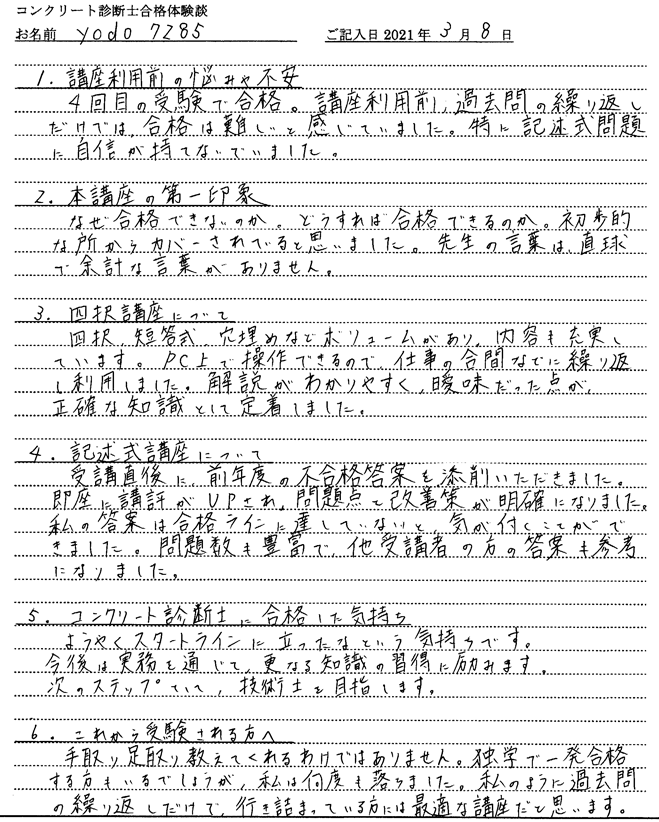 コンクリート診断士合格体験談
お名前 yodo 7285 ご記入日 2021年 3月 8日
1. 講座利用前の悩みや不安
4回目の受験で合格。講座利用前、過去問の繰り返し
だけでは、合格は難しいと感じていました。特に記述式問題
に自信が持てないでいました。
2. 本講座の第一印象
なぜ合格できないのか。どうすれば合格できるのか。初歩的
な所からカバーされていると思いました。先生の言葉は、直球
で余計な言葉がありません。
3. 四択講座について
四択、短答式、穴埋めなどボリュームがあり、内容も充実し
ています。PC上で操作できるので、仕事の合間などに繰り返
し利用しました。解説がわかりやすく、曖昧だった点が、
正確な知識として定着しました。
4. 記述式講座について
受講直後に、前年度の不合格答案を添削いただきました。
即座に講評がUPされ、問題点と改善策が明確になりました。
私の答案は合格ラインに達していないと、気が付くことがで
きました。問題数も豊富で、他受講者の方の答案も参考
になりました。
5. コンクリート診断士に合格した気持ち
ようやくスタートラインに立ったなという気持ちです。
今後は実務を通じて、更なる知識の習得に励みます。
次のステップとして、技術士を目指します。
6. これから受験される方へ
手取り足取り教えてくれるわけではありません。独学で一発合格
する方もいるでしょうが、私は何度も落ちました。私のように過去問
の繰り返しだけで、行き詰まっている方には最適な講座だと思います。